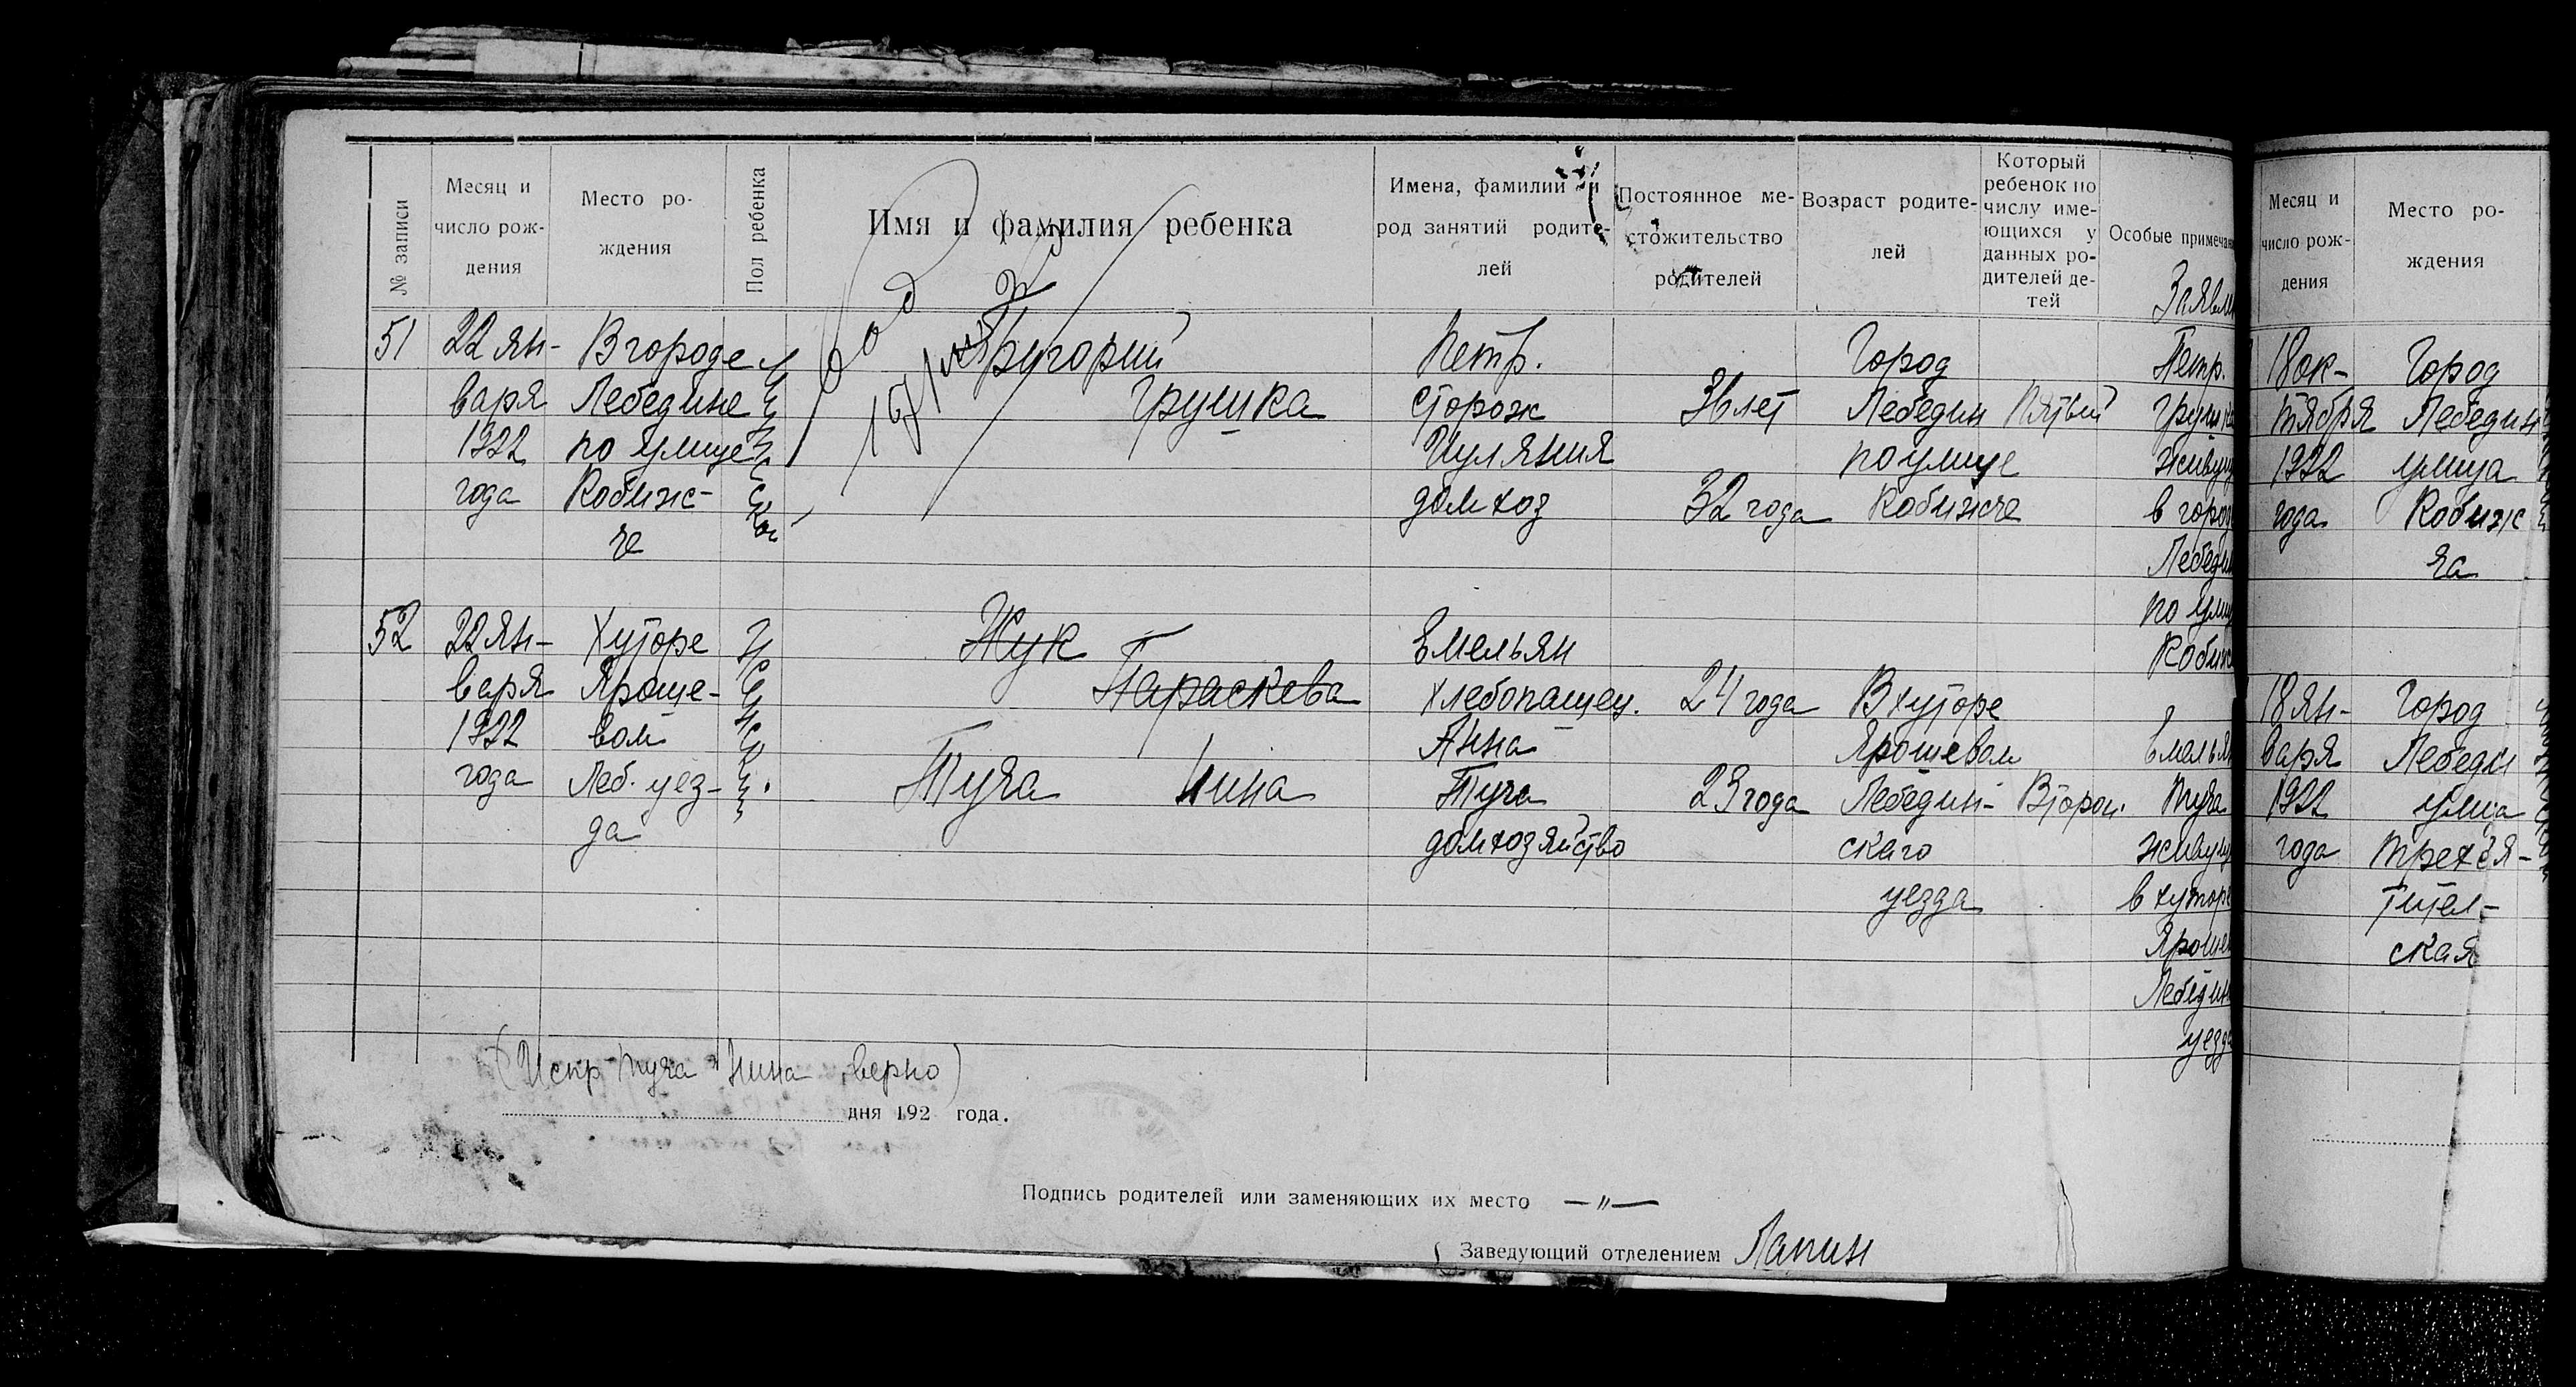 № записи
Месяц и число рождения
Место рождения
Пол ребенка
Имя и фамилия ребенка
Имена, фамилии и род занятий родителей
Постоянное местожительство родителей
Возраст родителей
Который ребенок по числу имеющихся у данных родителей детей
Особые примечан
Заявле
51
22 ян-
варя
1922
года
В городе
Лебедине
по улице
Кобиж-
че
Григорий
Грушка
Петр.
сторож
Иуляния
домхоз
36 лет
32 года
Город
Лебедин
по улице
Кобижче
Пятый
Петр.
Грушка
живущ
в город
Лебедин
по улиц
Кобиж
52
22 ян-
варя
1922
года
Хуторе
Яроше-
вом
Леб. уез-
да
Женский
Жук
Параскева
Туча Нина
Емельян
хлебопашец.
Анна
Туча
домхозяйство
24 года
23 года
В хуторе
Ярошевом
Лебедин-
скаго
уезда
Второй.
Емельян
Туча
живущ
в хуторе
Ярошев
Лебедин
уезда
(Испр Туча Нина верно)
дня 192 года.
Подпись родителей или заменяющих их место —〃—
Заведующий отделением Лапин
Месяц и число рождения
Место рождения
18 ок-
тября
1922
года
Город
Лебедин
улица
Кобиж
ча
18 ян-
варя
1922
года
Город
Лебедин
улица
Трехсвя-
тител-
ская